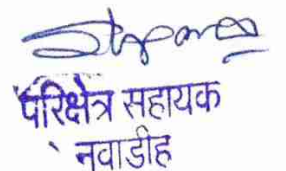 परिक्षेत्र सहायक
नवाडीह